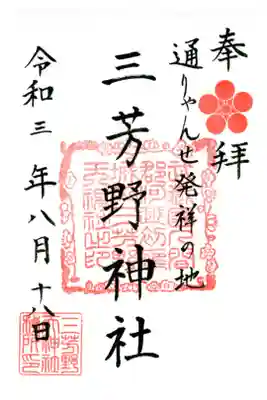 奉拝
通りゃんせ発祥の地
三芳野神社
令和三年八月十八日